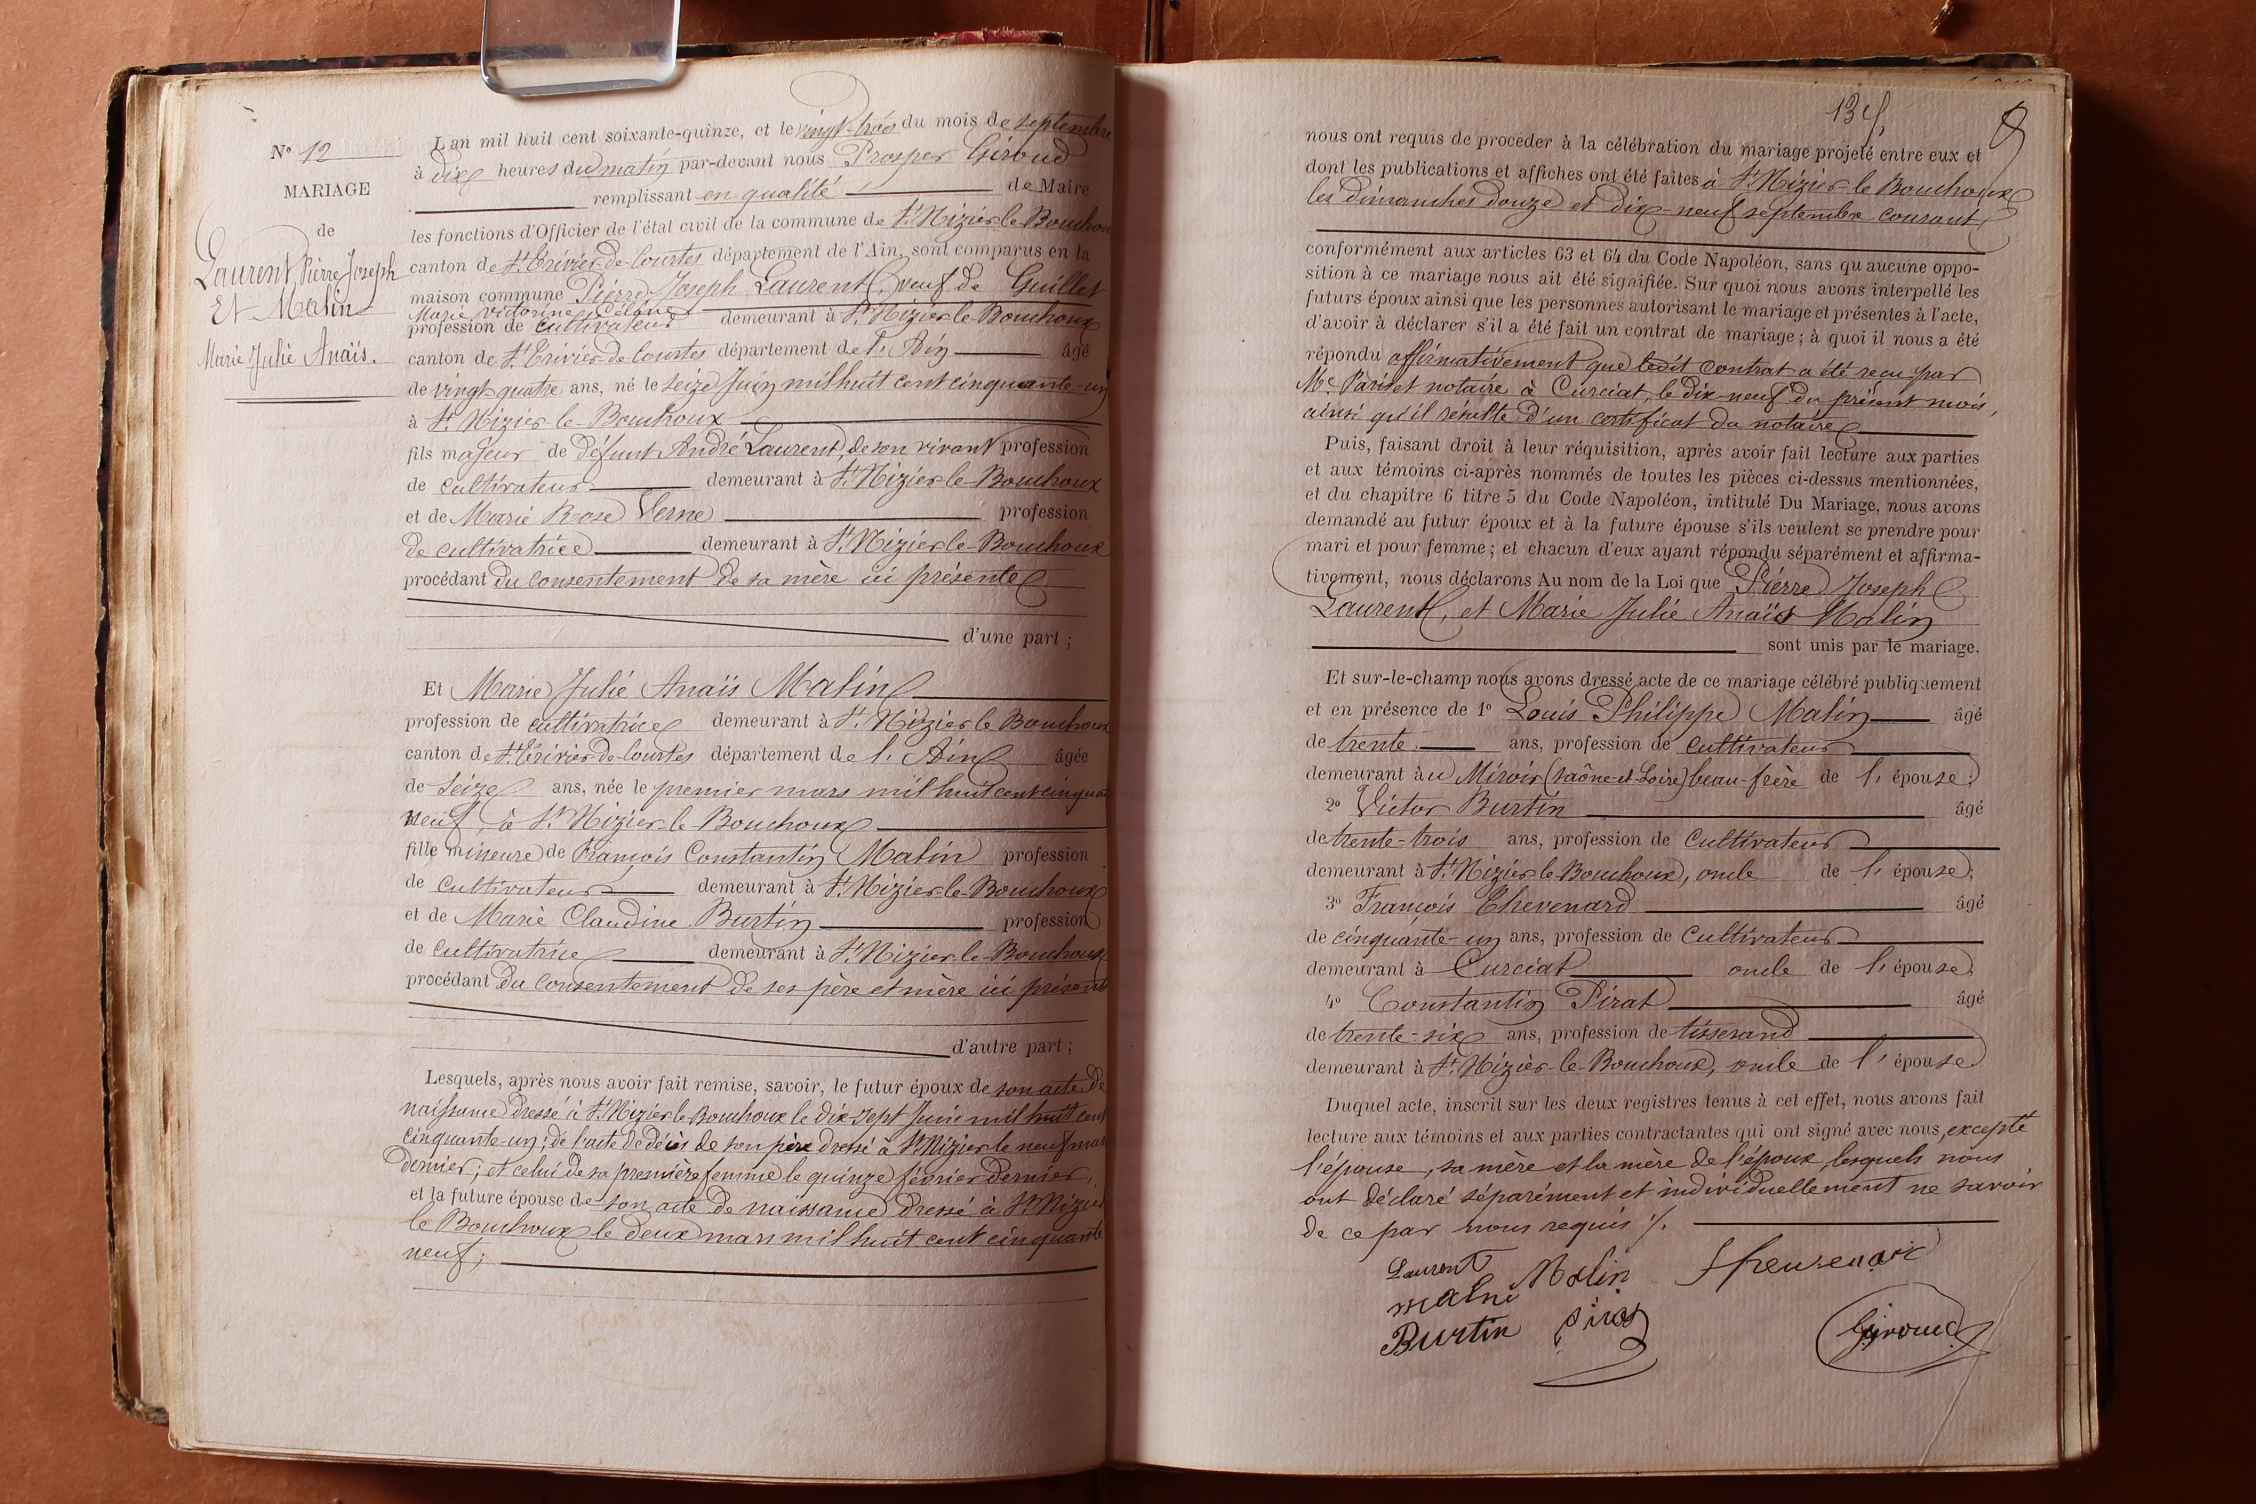 N° 12
MARIAGE
de
Laurent, Pierre Joseph
Et Malin
Marie Julie Anaïs.
L'an mil huit cent soixante-quinze, et le vingt-trois du mois de septembre
à dix heures du matin par-devant nous Prosper Giroud
remplissant en qualité de Maire
les fonctions d'Officier de l'état civil de la commune de St Nizier le Bouchoux
canton de St Trivier-de-Courtes département de l'Ain, sont comparus en la
maison commune Pierre Joseph Laurent, veuf de Guillet
Marie Victorine Célanie
profession de cultivateur demeurant à St Nizier le Bouchoux
canton de St Trivier de Courtes département de l'Ain âgé
de vingt quatre ans, né le seize Juin mil huit cent cinquante-un
à St Nizier-le-Bouchoux
fils majeur de défunt André Laurent, de son vivant profession
de cultivateur demeurant à St Nizier-le-Bouchoux
et de Marie Rose Verne profession
de cultivatrice demeurant à St Nizier-le-Bouchoux
procédant du consentement de sa mère ici présente
d'une part ;
Et Marie Julie Anaïs Malin
profession de cultivatrice demeurant à St Nizier le Bouchoux
canton de St Trivier-de-Courtes département de l'Ain âgée
de seize ans, née le premier mars mil huit cent cinquante
neuf, à St Nizier-le-Bouchoux
fille mineure de François Constantin Malin profession
de cultivateur demeurant à St Nizier-le-Bouchoux
et de Marie Claudine Burtin profession
de cultivatrice demeurant à St Nizier-le-Bouchoux
procédant du consentement de ses père et mère ici présents
d'autre part ;
Lesquels, après nous avoir fait remise, savoir, le futur époux de son acte de
naissance dressé à St Nizier le Bouchoux le dix-sept Juin mil huit cent
cinquante-un ; de l'acte de décès de son père dressé à St Nizier le neuf mars
dernier ; et celui de sa première femme le quinze février dernier,
et la future épouse de son acte de naissance dressé à St Nizier
le Bouchoux le deux mars mil huit cent cinquante
neuf ;
134
nous ont requis de procéder à la célébration du mariage projeté entre eux et
dont les publications et affiches ont été faites à St Nizier-le Bouchoux
les dimanches douze et dix-neuf septembre courant
conformément aux articles 63 et 64 du Code Napoléon, sans qu'aucune oppo-
sition à ce mariage nous ait été signifiée. Sur quoi nous avons interpellé les
futurs époux ainsi que les personnes autorisant le mariage et présentes à l'acte,
d'avoir à déclarer s'il a été fait un contrat de mariage ; à quoi il nous a été
répondu affirmativement que ledit contrat a été reçu par
Me Pariset notaire à Curciat, le dix-neuf du présent mois,
ainsi qu'il résulte d'un certificat du notaire
Puis, faisant droit à leur réquisition, après avoir fait lecture aux parties
et aux témoins ci-après nommés de toutes les pièces ci-dessus mentionnées,
et du chapitre 6 titre 5 du Code Napoléon, intitulé Du Mariage, nous avons
demandé au futur époux et à la future épouse s'ils veulent se prendre pour
mari et pour femme ; et chacun d'eux ayant répondu séparément et affirma-
tivement, nous déclarons Au nom de la Loi que Pierre Joseph
Laurent, et Marie Julie Anaïs Malin
sont unis par le mariage.
Et sur-le-champ nous avons dressé acte de ce mariage célébré publiquement
et en présence de 1° Louis Philippe Malin âgé
de trente ans, profession de cultivateur
demeurant au Miroir (Saône-et-Loire) beau-frère de l'épouse ;
2° Victor Burtin âgé
de trente-trois ans, profession de cultivateur
demeurant à St Nizier le Bouchoux, oncle de l'épouse ;
3° François Chevenard âgé
de cinquante-un ans, profession de cultivateur
demeurant à Curciat oncle de l'épouse ;
4° Constantin Pirat âgé
de trente-six ans, profession de tisserand
demeurant à St Nizier-le-Bouchoux, oncle de l'épouse
Duquel acte, inscrit sur les deux registres tenus à cet effet, nous avons fait
lecture aux témoins et aux parties contractantes qui ont signé avec nous, excepté
l'épouse, sa mère et la mère de l'époux, lesquels nous
ont déclaré séparément et individuellement ne savoir
de ce par nous requis ./.
Laurent Malin
Burtin Pirat Giroud